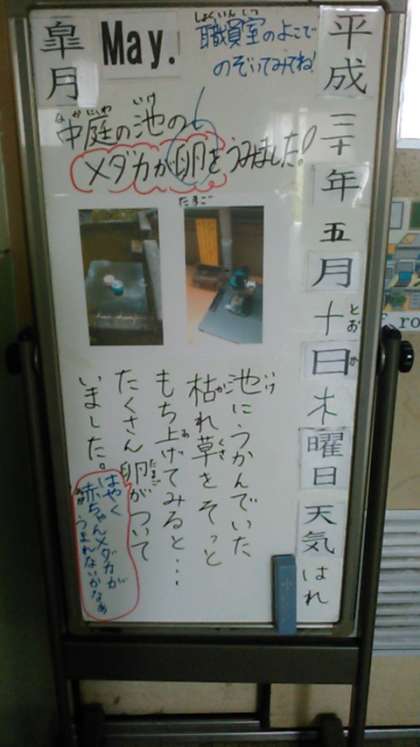 平成三十年五月十日木曜日天気はれ
とお
か
皐月
May.
しょくいんしつ
職員室のよこで
のぞいてみてね!
なかにわ
いけ
中庭の池の
メダカが卵をうみました!
たまご
いけ
池にうかんでいた
か
くさ
枯れ草をそっと
あ
もち上げてみると…
たまご
たくさん卵がついて
いました。
はやく
赤ちゃんメダカが
あか
うまれないかなぁ